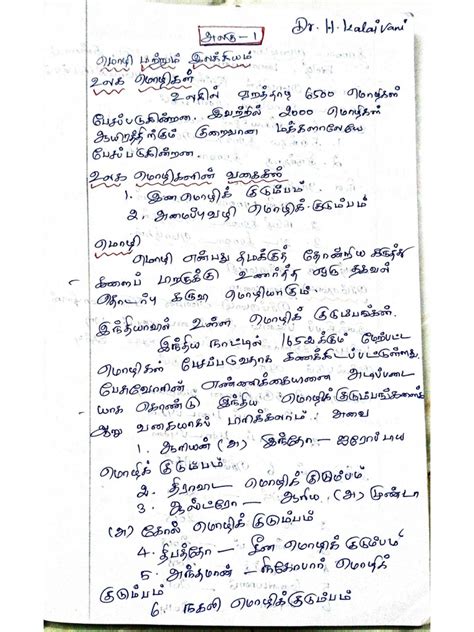 Dr. H. Kalaivani
அலகு - 1
மொழி மற்றும் இலக்கியம்
உலக மொழிகள்
உலகில் ஏறத்தாழ 6500 மொழிகள்
பேசப்படுகின்றன. இவற்றில் 2000 மொழிகள்
ஆயிரத்திற்கும் குறைவான மக்களாலேயே
பேசப்படுகின்றன.
உலக மொழிகளின் வகைகள்
1. இனமொழிக் குடும்பம்.
2. அமைப்புவழி மொழிக் குடும்பம்
மொழி
மொழி என்பது தமக்குத் தோன்றிய கருத்து
களைப் மறருக்கு உணர்த்த ஒரு தகவல்
தொடர்பு கருவி மொழியாகும்.
இந்தியாவில் உள்ள மொழிக் குடும்பங்கள்.
இந்திய நாட்டில் 165க்கும் மேற்பட்ட
மொழிகள் பேசப்படுவதாக கணக்கிடப்பட்டுள்ளது.
பேசுவோரின் எண்ணிக்கையினை அடிப்படை
யாக கொண்டு இந்திய மொழிக்குடும்பங்களை
ஆறு வகையாகப் பிரிக்கலாம். அவை
1. ஆரியன் (அ) இந்தோ - ஐரோப்பிய
மொழிக் குடும்பம்
2. திராவிட மொழிக் குடும்பம்.
3. ஆஸ்ட்ரோ - ஆசிய (அ) முண்டா
(அ) கோல் மொழிக் குடும்பம்
4. திபத்தோ - சீன மொழிக் குடும்பம்
5. அந்தமான் - நிகோபார் மொழிக்
குடும்பம்
6. நகலி மொழிக்குடும்பம்